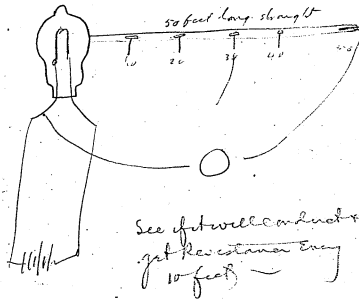 50 feet long straight
10 20 30 40 50
See if it will conduct &
get Resistance Every
10 feet —